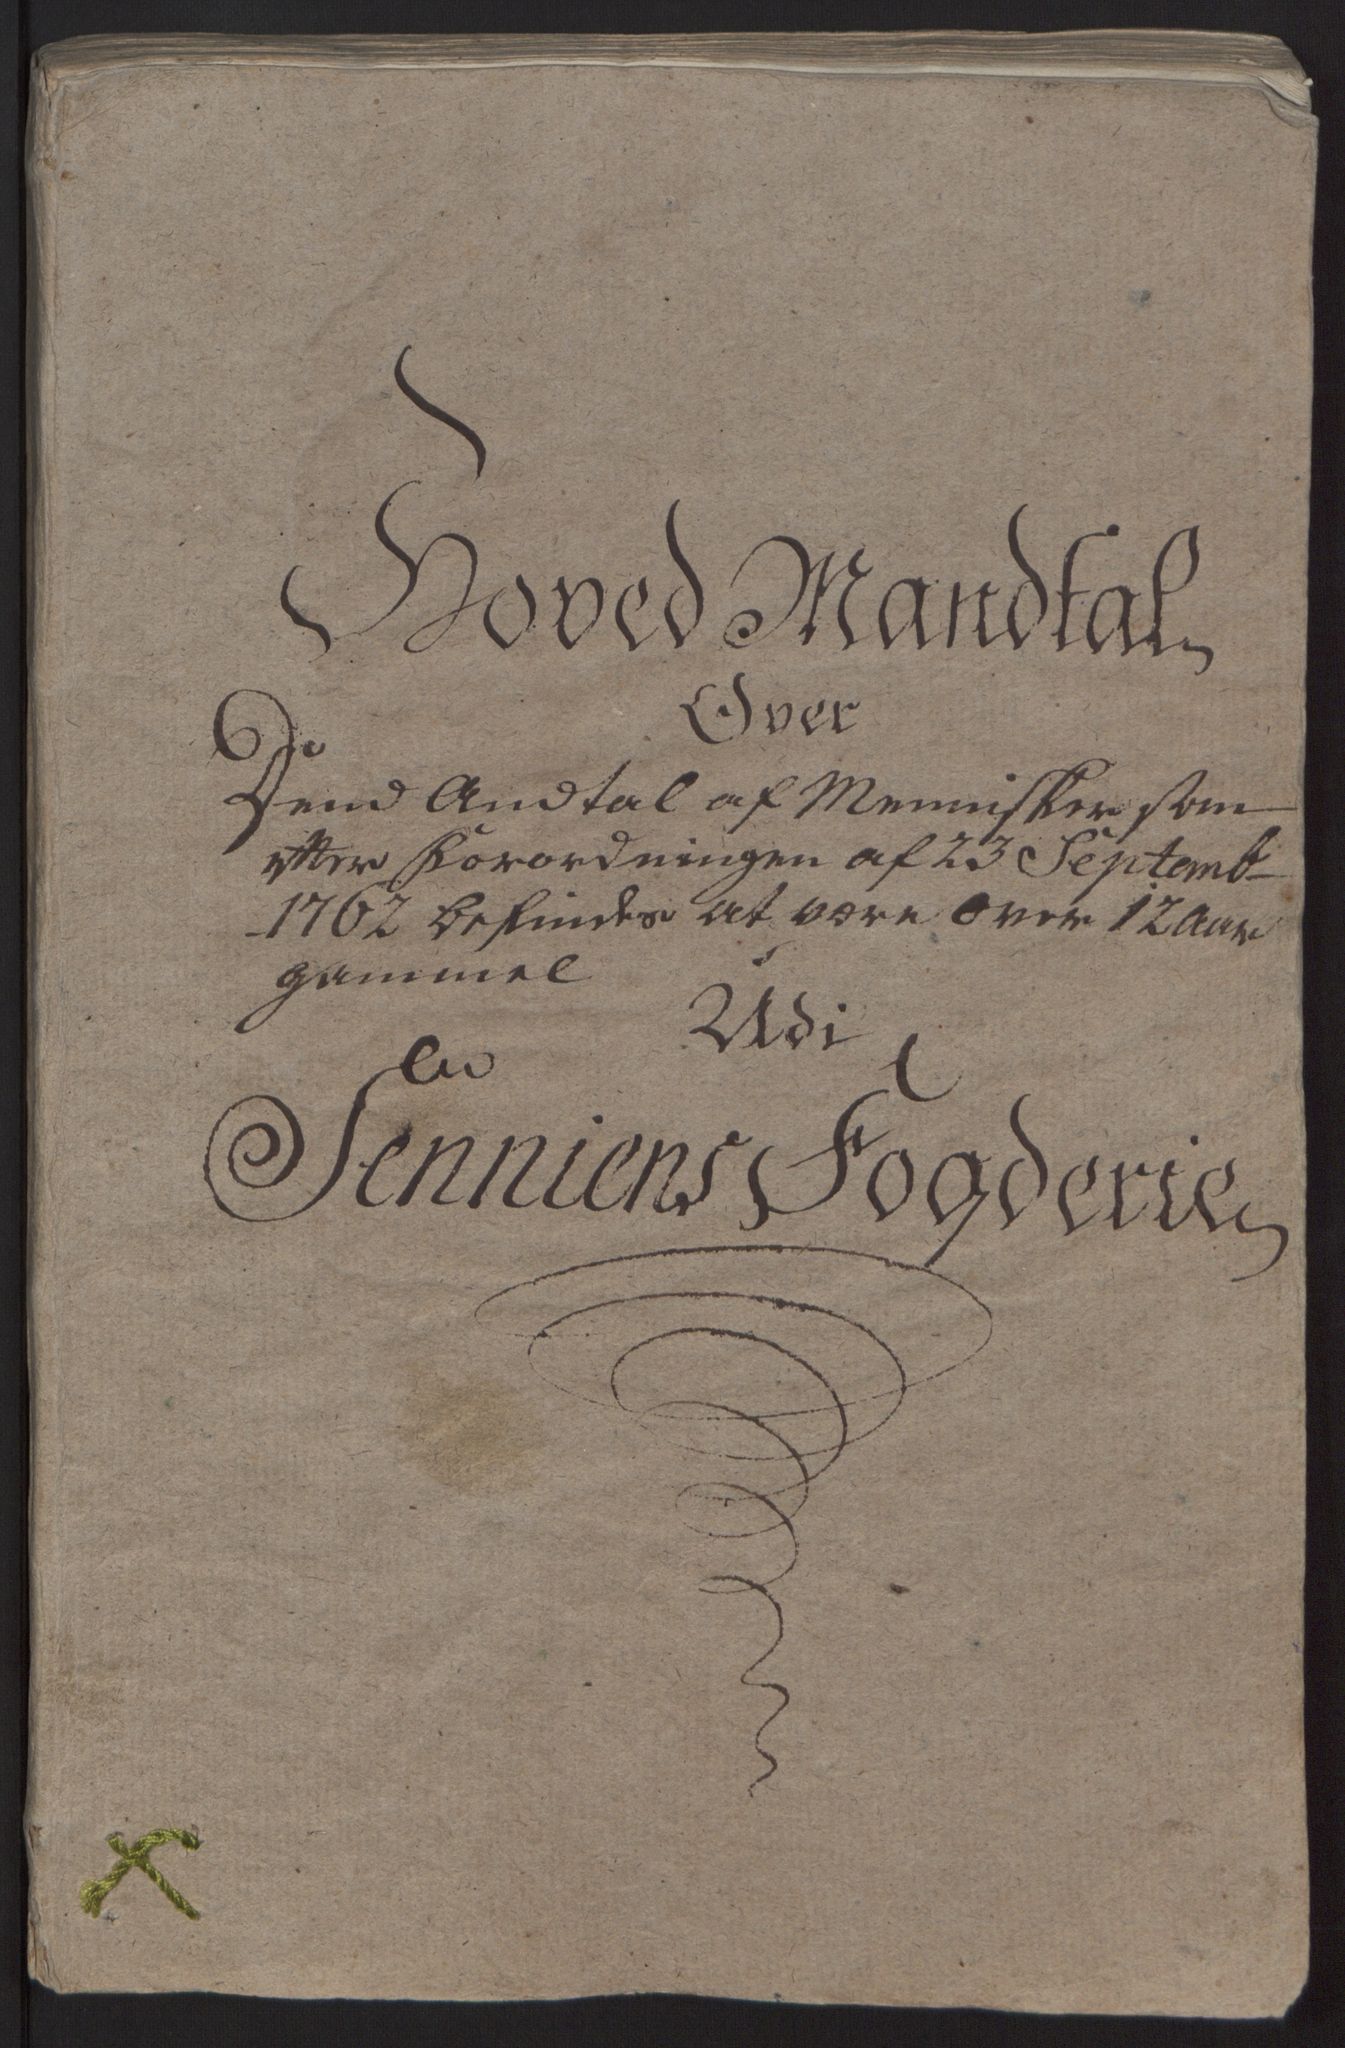 Hoved Mandtal
Over
Dend Andtal af Mennisker som
efter Forordningen af 23 Septemb
1762 befindes at være over 12 Aar
gammel
Udi
Senniens Fogderie